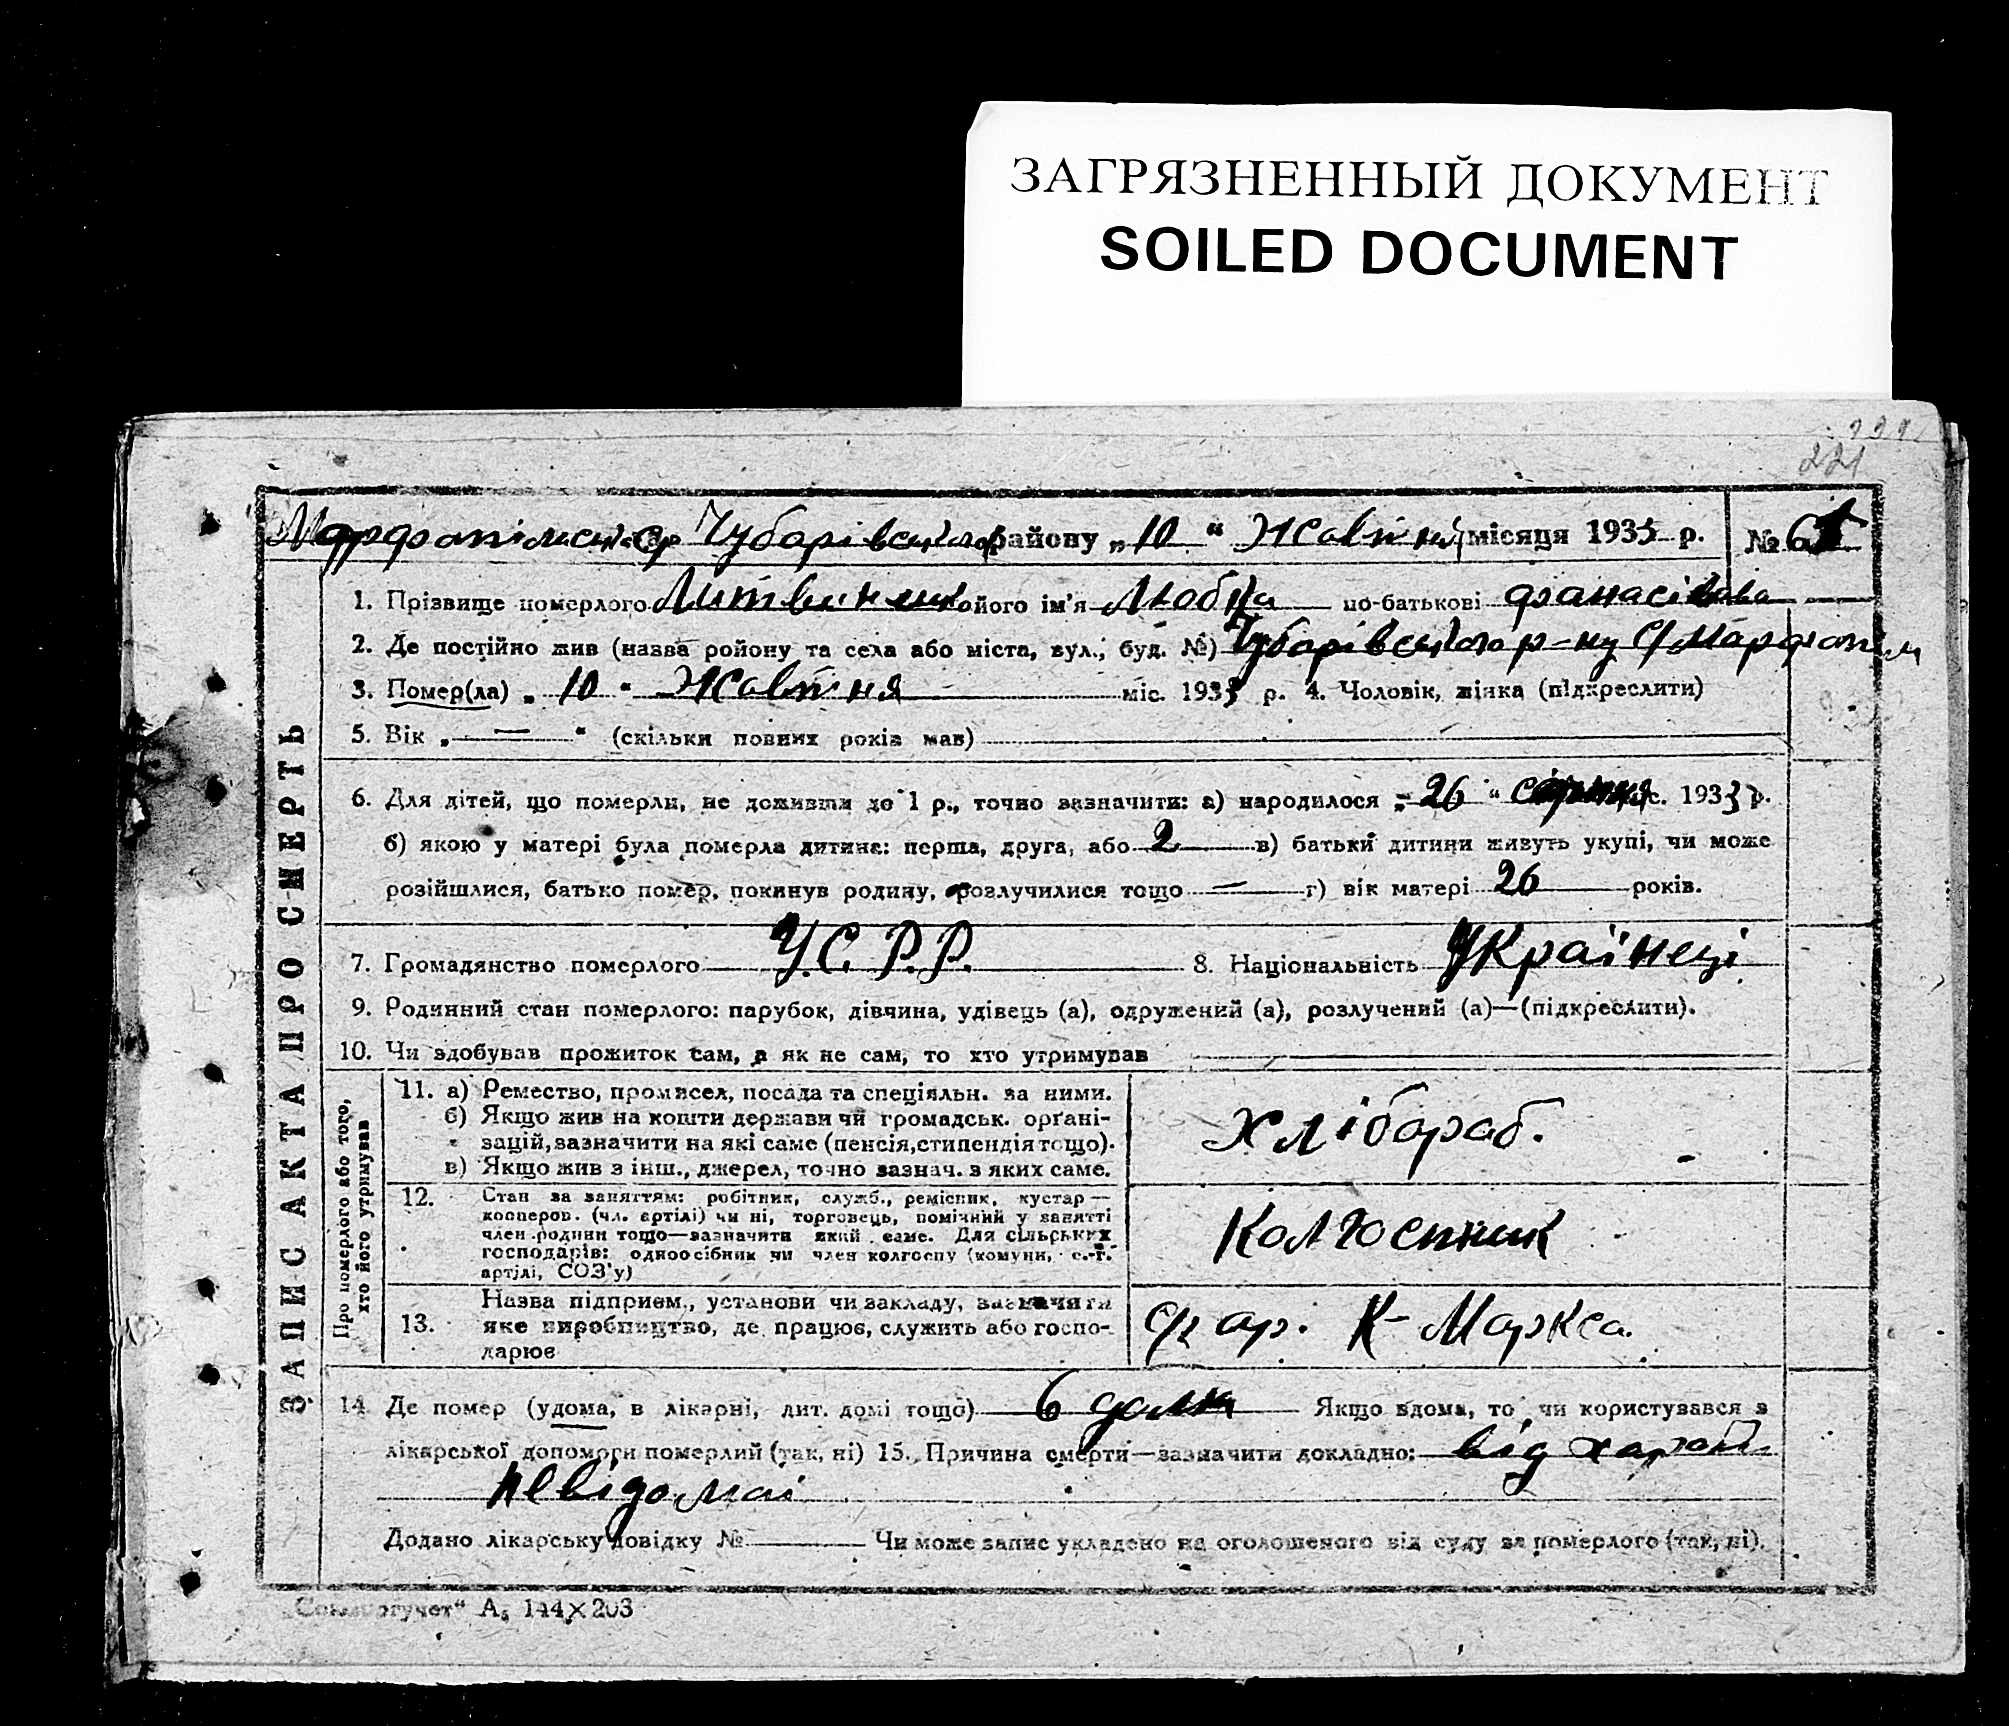 ЗАГРЯЗНЕННЫЙ ДОКУМЕНТ
SOILED DOCUMENT
221
Чубарівського району „10“ Жовтня місяця 1933 р. №
1. Прізвище померлого Литвиненко його ім'я Любка по-батькові
2. Де постійно жив (назва ройону та села або міста, вул., буд. №) Чубарівського р-ну С/Марфопіл
3. Помер(ла) „10“ Жовтня міс. 1933 р. 4. Чоловік, жінка (підкреслити)
5. Вік „—“ (скільки повних років мав)
6. Для дітей, що померли, не доживши до 1 р., точно вазначити: а) народилося „26“ серпня міс. 1933 р.
б) якою у матері була померла дитина: перша, друга, або 2 в) батьки дитини живуть укупі, чи може
розійшлися, батько помер, покинув родину, розлучилися тощо — г) вік матері 26 років.
7. Громадянство померлого У.С.Р.Р. 8. Національність Українеці
9. Родинний стан померлого: парубок, дівчина, удівець (а), одружений (а), розлучений (а)—(підкреслити).
10. Чи здобував прожиток сам, а як не сам, то хто утримував
ЗАПИС АКТА ПРО СМЕРТЬ
Про померлого або того, хто його утримував
11. а) Ремество, промисел, посада та спеціяльн. за ними.
б) Якщо жив на кошти держави чи громадськ. орґані-
зацій, зазначити на які саме (пенсія, стипендія тощо).
в) Якщо жив з інш., джерел, точно зазнач. з яких саме.
Хлібораб.
12. Стан за заняттям: робітник, служб., ремісник, кустар—
кооперов. (чл. артілі) чи ні, торговець, помічний у занятті
член родини тощо—зазначити який саме. Для сільських
господарів: одноосібник чи член колгоспу (комуни, с.-г.
артілі, СОЗ'у)
Колгоспник
13. Назва підприєм., установи чи закладу, зазначити
яке виробництво, де працює, служить або госпо-
дарює
с/г ар. К-Маркса.
14. Де помер (удома, в лікарні, пит. домі тощо) в дома Якщо вдома, то чи користувався з
лікарської допомоги померлий (так, ні) 15. Причина смерти—зазначити докладно: від хароби
невідомаі
Додано лікарську довідку № Чи може запис укладено на оголошеного від суду за померлого (так, ні).
А5 144×203